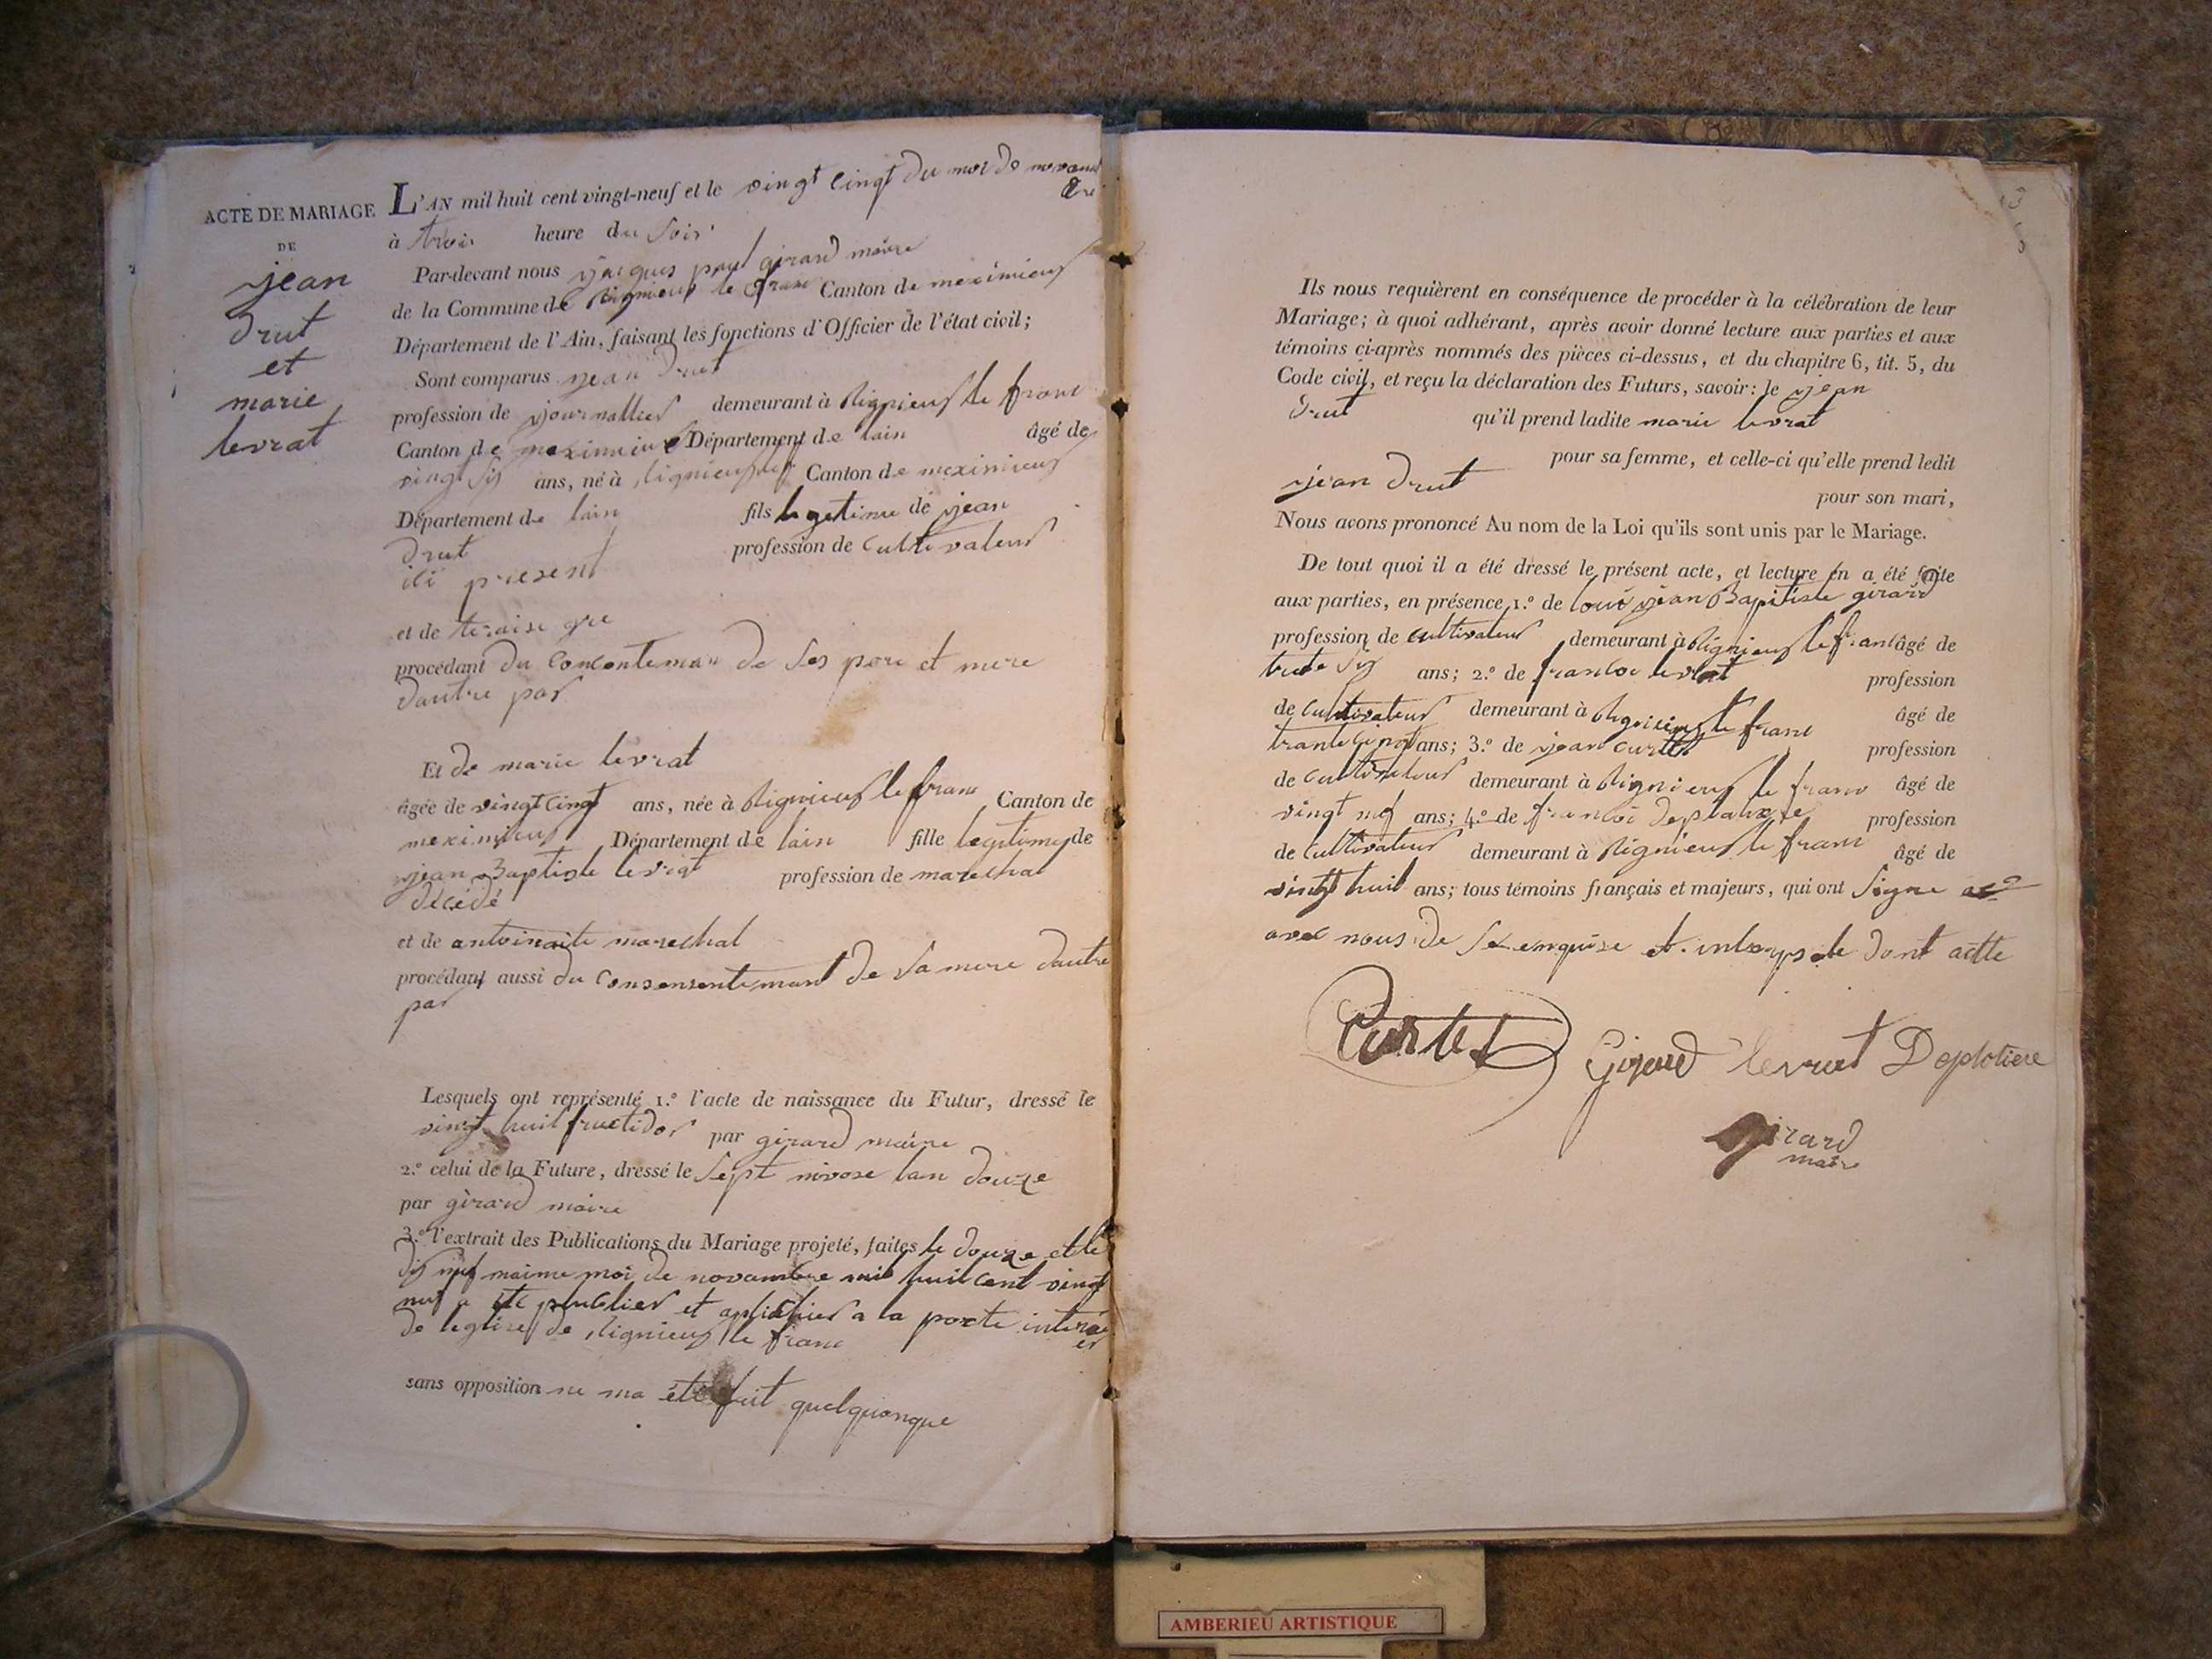 ACTE DE MARIAGE
DE
jean
drut
et
marie
levrat
L'AN mil huit cent vingt-neuf et le vingt cinqt du moi de novam
bre
à trois heure du soir
Par-devant nous jacques paul girard maire
de la Commune de Rignieux le franc Canton de meximieux
Département de l'Ain, faisant les fonctions d'Officier de l'état civil;
Sont comparus jean drut
profession de journallier demeurant à Rignieux le franc
Canton de meximieux Département de lain âgé de
vingt six ans, né à Rignieux Canton de meximieux
Département de lain fils legetime de jean
drut profession de cultivateur
ici present
et de teraise
procédant du concenteman de ses pere et mere
dautre par
Et de marie levrat
âgée de vingt cinqt ans, née à Rignieux le franc Canton de
meximieux Département de lain fille legitime de
jean Baptiste levrat profession de marechal
décédé
et de antoinaite marechal
procédant aussi du consensentemant de sa mere dautre
par
Lesquels ont représenté 1.º l'acte de naissance du Futur, dressé le
vingt huit fructidor par girard maire
2.º celui de la Future, dressé le sept nivose lan douze
par girard maire
3.º l'extrait des Publications du Mariage projeté, faites le douze et le
dix neuf maime moi de novambre mil huit cent vingt
neuf a été publier et afichier a la porte
de leglise de Rignieux le franc
sans opposition ne ma été fait quelquonque
Ils nous requièrent en conséquence de procéder à la célébration de leur
Mariage; à quoi adhérant, après avoir donné lecture aux parties et aux
témoins ci-après nommés des pièces ci-dessus, et du chapitre 6, tit. 5, du
Code civil, et reçu la déclaration des Futurs, savoir: le jean
drut qu'il prend ladite marie levrat
pour sa femme, et celle-ci qu'elle prend ledit
jean drut pour son mari,
Nous avons prononcé Au nom de la Loi qu'ils sont unis par le Mariage.
De tout quoi il a été dressé le présent acte, et lecture en a été faite
aux parties, en présence, 1.º de loui jean Baptiste girard
profession de cultivateur demeurant à Rignieux le franc âgé de
six ans; 2.º de francoi levrat profession
de cultivateur demeurant à Rignieux le franc âgé de
trante cinqt ans; 3.º de jean curtet profession
de cultivateur demeurant à Rignieux le franc âgé de
vingt nef ans; 4.º de francoi profession
de cultivateur demeurant à Rignieux le franc âgé de
vingt huit ans; tous témoins français et majeurs, qui ont signe
avec nous de se enquise et dont actte
Curtet Girard levrat Deplatiere
girard
maire
AMBERIEU ARTISTIQUE